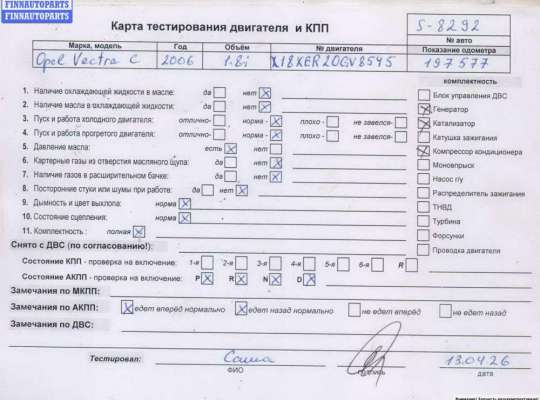 FINNAUTOPARTS
FINNAUTOPARTS
Карта тестирования двигателя и КПП
S-8292
№ авто
Марка, модель Год Объём № двигателя Показание одометра
Opel Vectra C 2006 1.8i X18XER20GV8545 197577
комплектность
1. Наличие охлаждающей жидкости в масле: да нет
Блок управления ДВС
2. Наличие масла в охлаждающей жидкости: да нет
Генератор
3. Пуск и работа холодного двигателя: отлично- норма - плохо - не завелся-
Катализатор
4. Пуск и работа прогретого двигателя: отлично- норма - плохо - не завелся-
Катушка зажигания
5. Давление масла: есть нет
Компрессор кондиционера
6. Картерные газы из отверстия масляного щупа: да нет
Моновпрыск
7. Наличие газов в расширительном бачке: да нет
Насос г/у
8. Посторонние стуки или шумы при работе: да нет
Распределитель зажигания
9. Дымность и цвет выхлопа: норма
ТНВД
10. Состояние сцепления: норма
Турбина
11. Комплектность : полная
Форсунки
Снято с ДВС (по согласованию!):
Проводка двигателя
Состояние КПП - проверка на включение: 1-я 2-я 3-я 4-я 5-я 6-я R
Состояние АКПП - проверка на включение: P R N D
Замечания по МКПП:
Замечания по АКПП: едет вперёд нормально едет назад нормально не едет вперёд не едет назад
Замечания по ДВС:
Тестировал: Саша 13.04.26
ФИО подпись дата